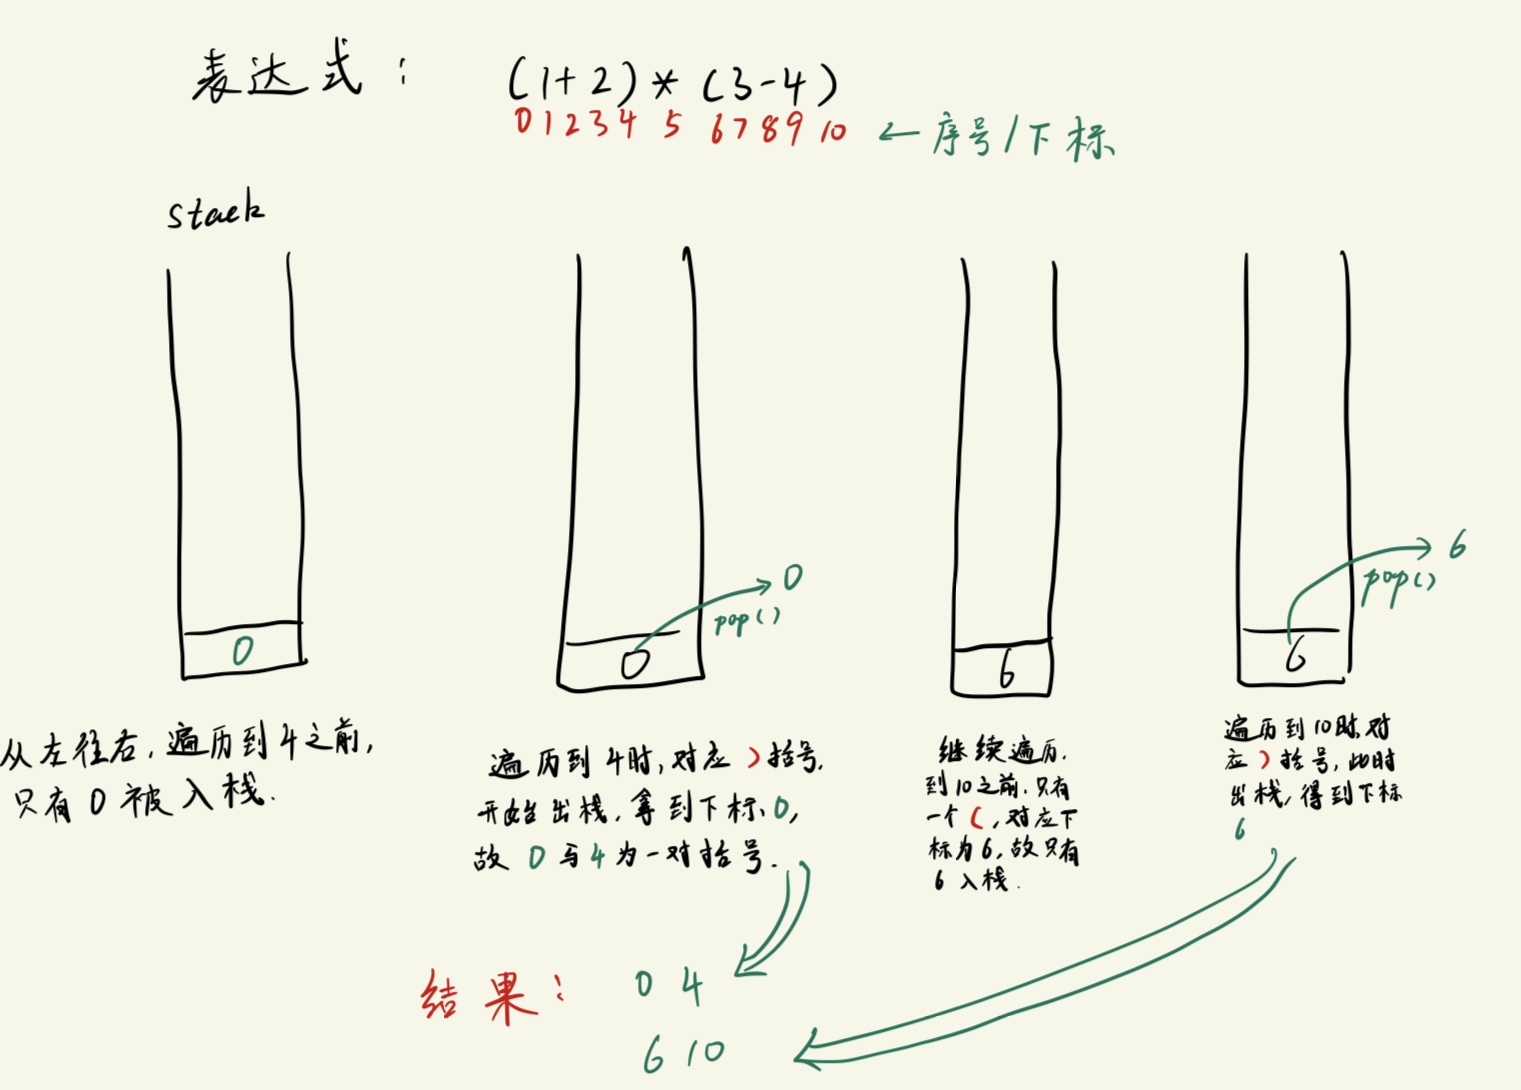 表达式: (1+2)*(3-4)
0 1 2 3 4 5 6 7 8 9 10 ← 序号/下标
stack
0
0
pop()
0
6
6
pop()
6
从左往右,遍历到4之前,
只有0被入栈.
遍历到4时,对应)括号,
开始出栈,拿到下标0,
故0与4为一对括号.
继续遍历.
到10之前.只有
一个(,对应下
标为6,故只有
6入栈.
遍历到10时,对
应)括号,此时
出栈,得到下标
6
结果: 0 4
6 10